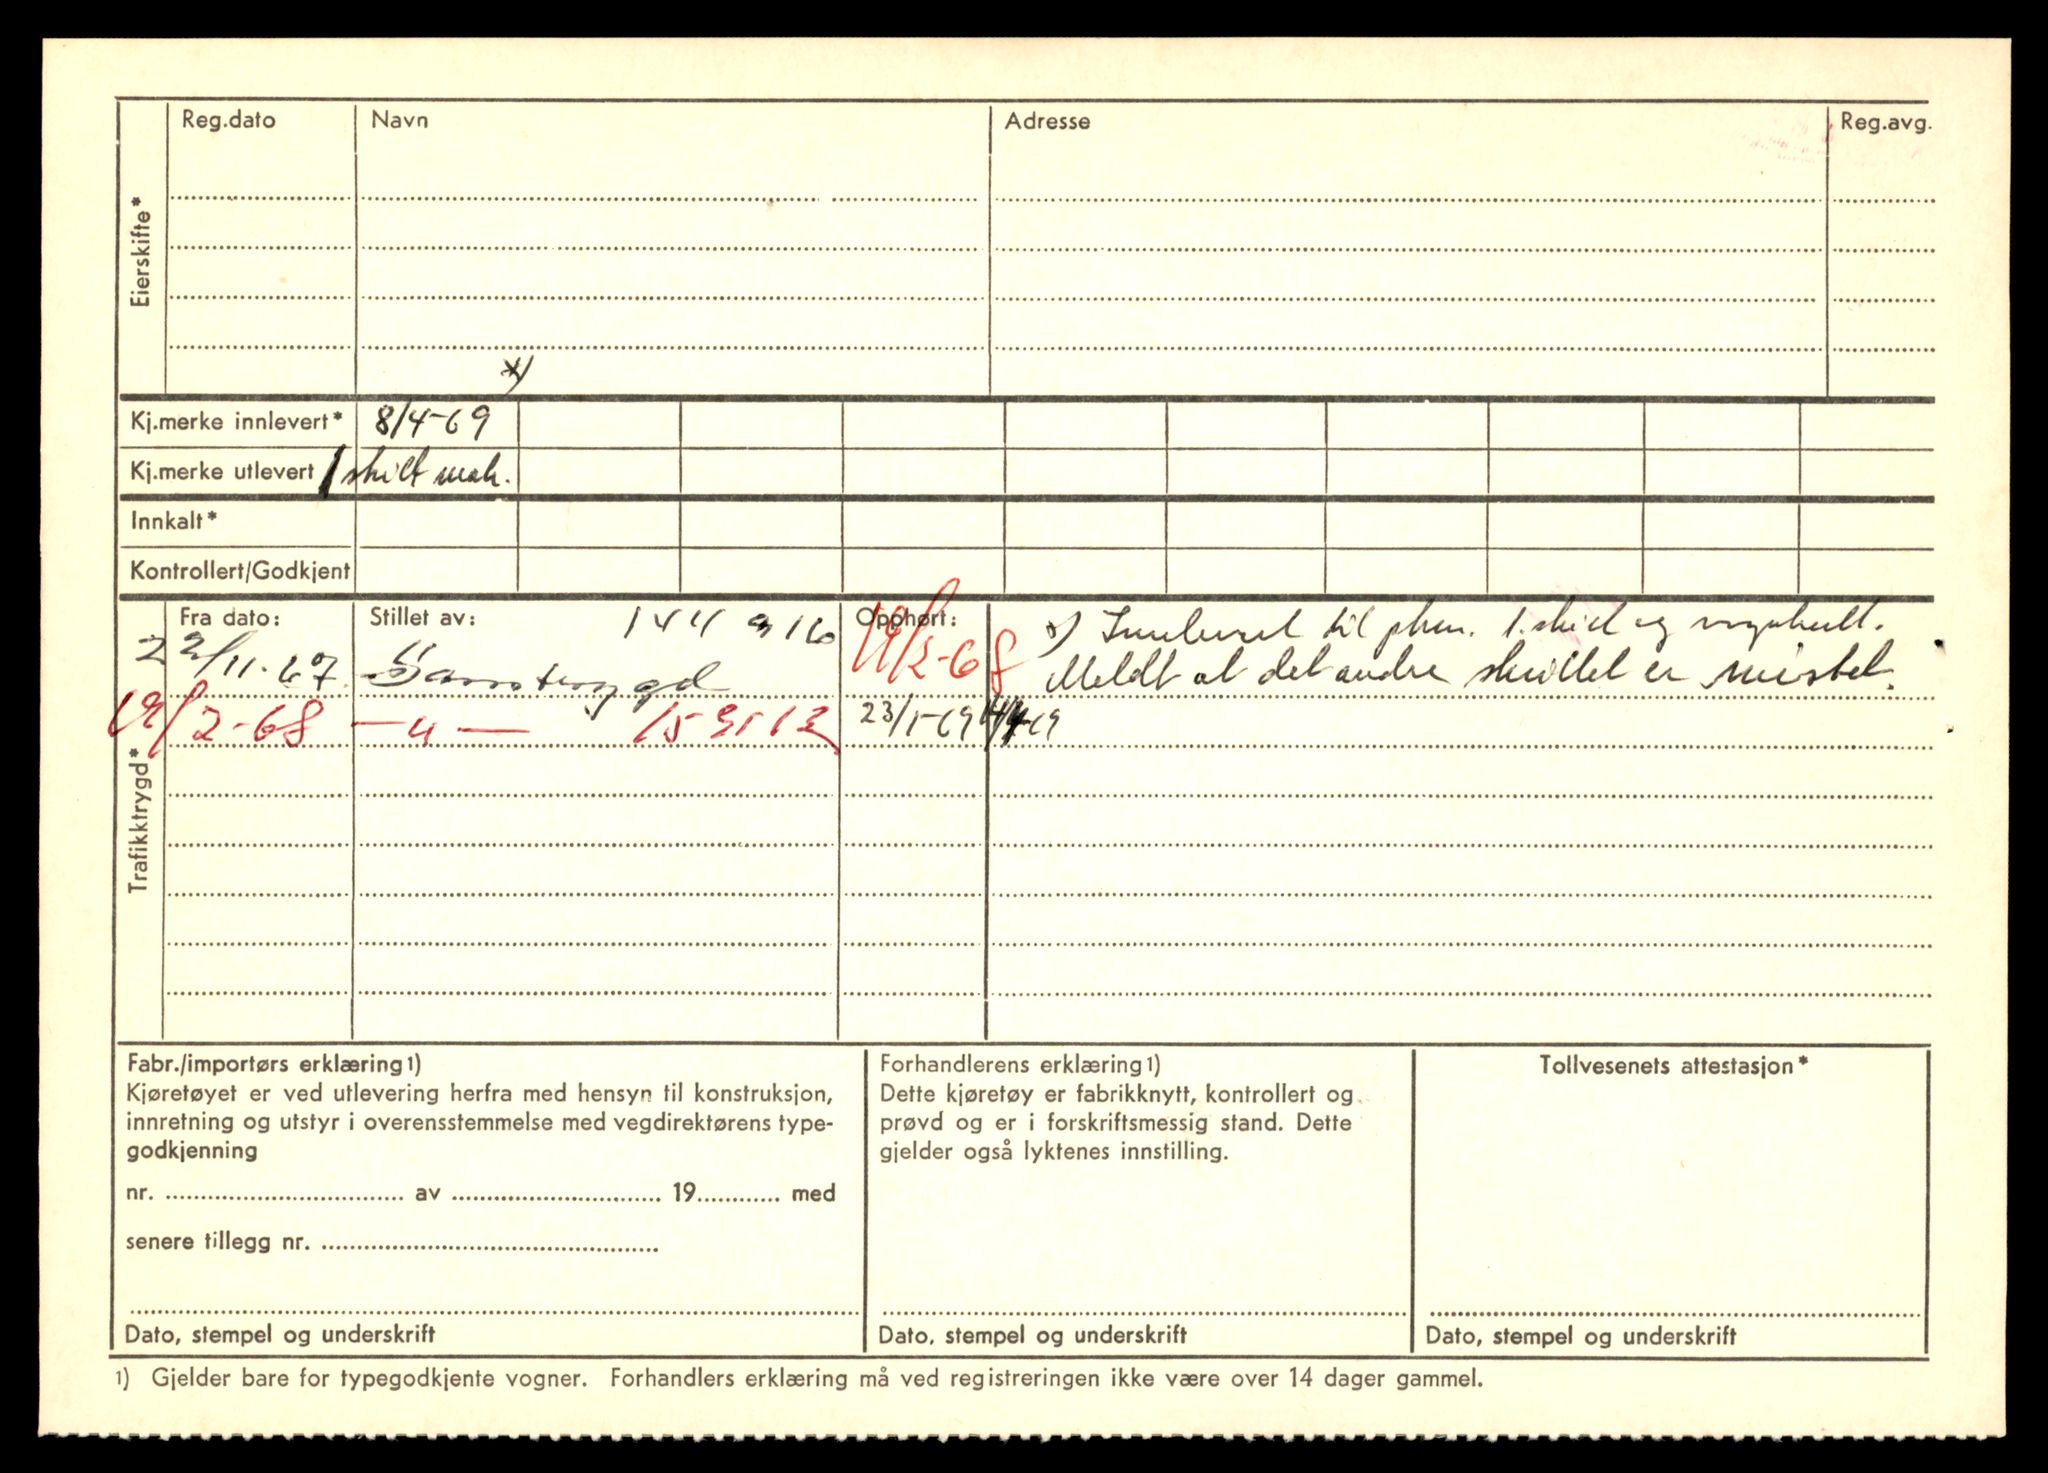 Reg.dato Navn Adresse Reg.avg.
Eierskifte*
*)
Kj.merke innlevert* 8/4-69
Kj.merke utlevert 1 skilt mak.
Innkalt*
Kontrollert/Godkjent
Trafikktrygd*
Fra dato: Stillet av: Opphørt:
144 916
22/11-67 Samtrygd 19/2-68
19/2-68 —"— 23/1-69
*) Innlevert til phm. 1 skilt og vognkort.
Meldt at det andre skiltet er mistet.
Fabr./importørs erklæring1)
Kjøretøyet er ved utlevering herfra med hensyn til konstruksjon,
innretning og utstyr i overensstemmelse med vegdirektørens type-
godkjenning
nr. av 19 med
senere tillegg nr.
Dato, stempel og underskrift
Forhandlerens erklæring1)
Dette kjøretøy er fabrikknytt, kontrollert og
prøvd og er i forskriftsmessig stand. Dette
gjelder også lyktenes innstilling.
Dato, stempel og underskrift
Tollvesenets attestasjon*
Dato, stempel og underskrift
1) Gjelder bare for typegodkjente vogner. Forhandlers erklæring må ved registreringen ikke være over 14 dager gammel.